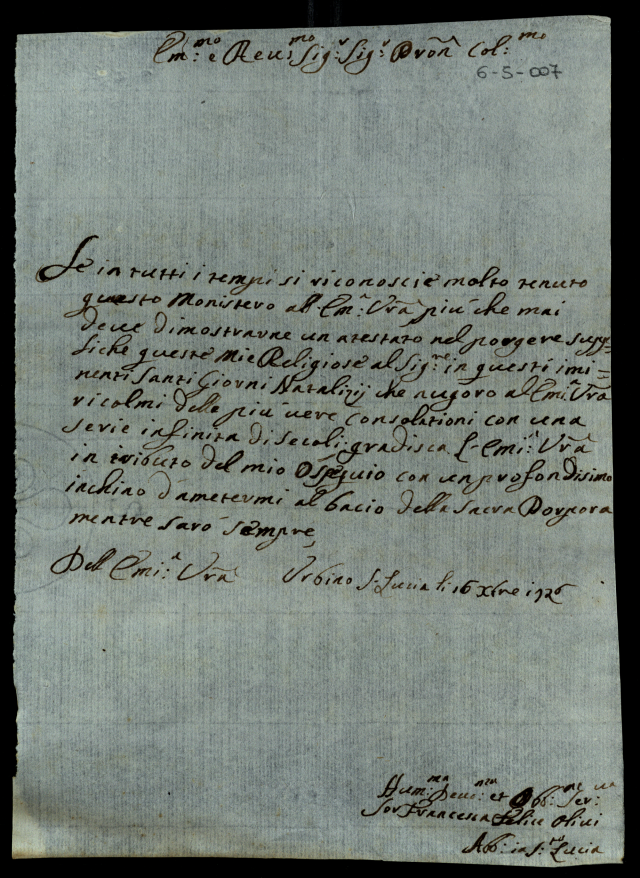 Em:mo e Reu:mo Sig:r Sig:r Pron Col:mo
6-5-007
Se in tutti i tempi si riconoscie molto tenuto
questo Monistero all Em:a Vra più che mai
deue dimostrarne un atestato nel porgere supp=
liche queste mie Religiose al Sig:re in questi imi=
nenti Santi Giorni Natalizij che auguro al Emi:a Vra
ricolmi delle più uere Consolationi con una
serie infinita di Secoli: gradisca L-Emi:a Vra
in tributo del mio Ossequio con un profondisimo
inchino d'ametermi al bacio della Sacra Porpora
mentre sarò sempre,
Dell Emi:a Vra Urbino S: Lucia li 16 Xbre 1726
Hum:ma Deu:ma et Obb:ma Ser:ua
Sor Francesca Felice Oliui
Abb: in S:ta Lucia